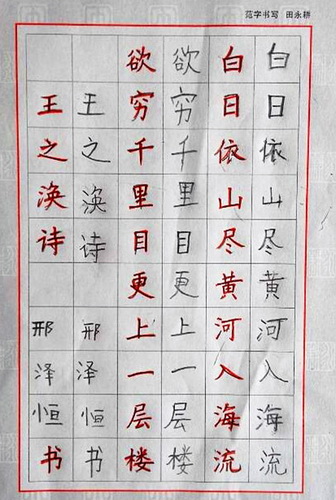 范字书写 田永耕
白日依山尽黄河入海流
白日依山尽黄河入海流
欲穷千里目更上一层楼
欲穷千里目更上一层楼
王之涣诗 邢泽恒书
王之涣诗 邢泽恒书